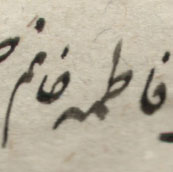 فاطمه خانم